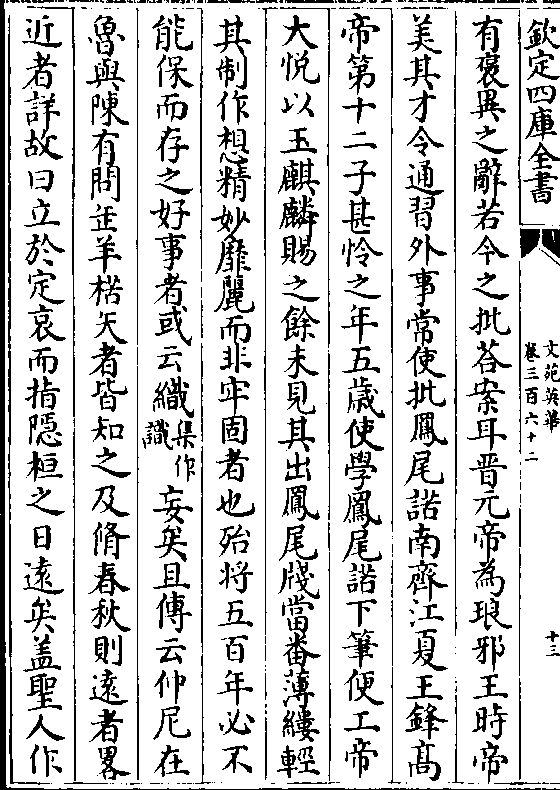 欽定四庫全書
文苑英華
卷三百六十二
十三
有褒異之辭若今之批荅案耳晋元帝為琅邪王時帝
美其才令通習外事常使批鳳尾諾南齊江夏王鋒髙
帝第十二子甚怜之年五歲使學鳳尾諾下筆便工帝
大悦以玉麒麟賜之餘未見其出鳳尾牋當番薄縷輕
其制作想精妙靡麗而非牢固者也殆将五百年必不
能保而存之好事者或云織集作識妄矣且傳云仲尼在
魯與陳有問㺿羊楛矢者皆知之及脩春秋則逺者畧
近者詳故曰立於定哀而指隠桓之日逺矣盖聖人作